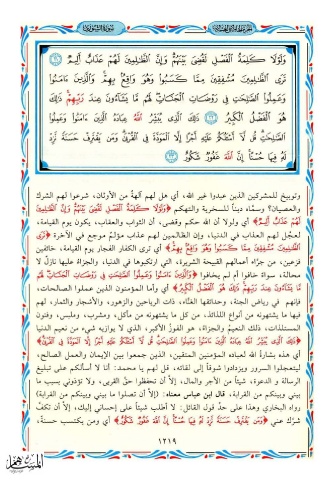 وَلَوْلَا كَلِمَةُ ٱلْفَصْلِ لَقُضِىَ بَيْنَهُمْ وَإِنَّ ٱلظَّـٰلِمِينَ لَهُمْ عَذَابٌ أَلِيمٌ ﴿٢١﴾
تَرَى ٱلظَّـٰلِمِينَ مُشْفِقِينَ مِمَّا كَسَبُوا۟ وَهُوَ وَاقِعٌۢ بِهِمْ وَٱلَّذِينَ ءَامَنُوا۟
وَعَمِلُوا۟ ٱلصَّـٰلِحَـٰتِ فِى رَوْضَاتِ ٱلْجَنَّاتِ لَهُم مَّا يَشَآءُونَ عِندَ رَبِّهِمْ ذَٰلِكَ
هُوَ ٱلْفَضْلُ ٱلْكَبِيرُ ﴿٢٢﴾ ذَٰلِكَ ٱلَّذِى يُبَشِّرُ ٱللَّهُ عِبَادَهُ ٱلَّذِينَ ءَامَنُوا۟ وَعَمِلُوا۟
ٱلصَّـٰلِحَـٰتِ قُل لَّآ أَسْـَٔلُكُمْ عَلَيْهِ أَجْرًا إِلَّا ٱلْمَوَدَّةَ فِى ٱلْقُرْبَىٰ وَمَن يَقْتَرِفْ حَسَنَةً نَّزِدْ
لَهُۥ فِيهَا حُسْنًا إِنَّ ٱللَّهَ غَفُورٌ شَكُورٌ ﴿٢٣﴾
وتوبيخ للمشركين الذين عبدوا غير الله، أي هل لهم آلهة من الأوثان، شرعوا لهم الشرك
والعصيان؟ وسمَّاه ديناً للسخرية والتهكم ﴿وَلَوْلَا كَلِمَةُ ٱلْفَصْلِ لَقُضِىَ بَيْنَهُمْ وَإِنَّ ٱلظَّـٰلِمِينَ
لَهُمْ عَذَابٌ أَلِيمٌ﴾ أي ولولا أن الله حكم وقضى، أن الثواب والعقاب، يكون يوم القيامة،
لعجل لهم العذاب في الدنيا، وإن الظالمين لهم عذاب مؤلم موجع في الآخرة ﴿تَرَى
ٱلظَّـٰلِمِينَ مُشْفِقِينَ مِمَّا كَسَبُوا۟ وَهُوَ وَاقِعٌۢ بِهِمْ﴾ أي ترى الكفار الفجار يوم القيامة، خائفين
فزعين، من جزاء أعمالهم القبيحة الشريرة، التي ارتكبوها في الدنيا، والجزاء عليها نازل لا
محالة، سواء خافوا أم لم يخافوا ﴿وَٱلَّذِينَ ءَامَنُوا۟ وَعَمِلُوا۟ ٱلصَّـٰلِحَـٰتِ فِى رَوْضَاتِ ٱلْجَنَّاتِ لَهُم
مَّا يَشَآءُونَ عِندَ رَبِّهِمْ ذَٰلِكَ هُوَ ٱلْفَضْلُ ٱلْكَبِيرُ﴾ أي وأما المؤمنون الذين عملوا الصالحات،
فإنهم في رياض الجنة، وحدائقها الغنَّاء، ذات الرياحين والزهور، والأشجار والثمار، لهم
فيها ما يشتهونه من أنواع اللذائذ، من كل ما يشتهونه من مأكل، ومشرب، وملبس، وفنون
المستلذات، ذلك النعيم والجزاء، هو الفوز الأكبر، الذي لا يوازيه شيء من نعيم الدنيا
﴿ذَٰلِكَ ٱلَّذِى يُبَشِّرُ ٱللَّهُ عِبَادَهُ ٱلَّذِينَ ءَامَنُوا۟ وَعَمِلُوا۟ ٱلصَّـٰلِحَـٰتِ قُل لَّآ أَسْـَٔلُكُمْ عَلَيْهِ أَجْرًا إِلَّا ٱلْمَوَدَّةَ فِى ٱلْقُرْبَىٰ﴾
أي هذه بشارة الله لعباده المؤمنين المتقين، الذين جمعوا بين الإيمان والعمل الصالح،
ليتعجلوا السرور ويزدادوا شوقاً إلى لقائه، قل لهم يا محمد: أنا لا أسألكم على تبليغ
الرسالة و الدعوة، شيئاً من الأجر والمال، إلا أن تحفظوا حق القربى، ولا تؤذوني بسبب ما
بيني وبينكم من القرابة، قال ابن عباس معناه: (إلا أن تصلوا ما بيني وبينكم من القرابة)
رواه البخاري وهذا على حد قول القائل: لا أطلب شيئاً على إحساني إليك، إلا أن تكف
شرك عني ﴿وَمَن يَقْتَرِفْ حَسَنَةً نَّزِدْ لَهُۥ فِيهَا حُسْنًا إِنَّ ٱللَّهَ غَفُورٌ شَكُورٌ﴾ أي ومن يكتسب حسنة،
١٢١٩